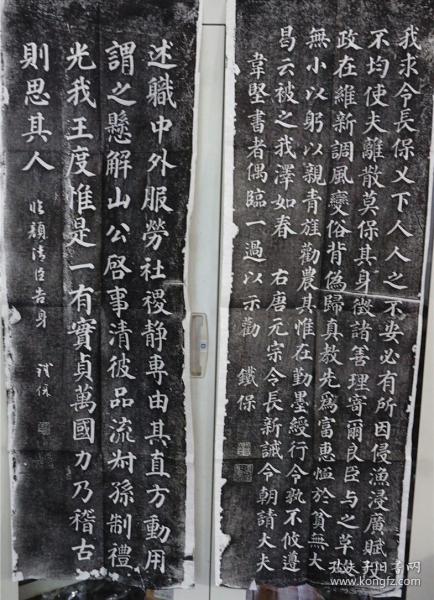 我求令長保乂下人人之不安必有所因侵漁浸廣賦
不均使夫離散莫保其身徵諸善理寄爾良臣与之革故
政在維新調風變俗背偽歸真教先為富惠恤於貧無大
無小以躬以親青旌勸農其惟在勤墨綬行令孰不攸遵
曷云被之我澤如春 右唐元宗令長新誡令朝請大夫
韋堅書者偶臨一過以示勸 鐵保
述職中外服勞社稷静專由其直方動用
謂之懸解山公啓事清彼品流叔孫制禮
光我王度惟是一有實貞萬國力乃稽古
則思其人 臨顏清臣告身 鐵保
孔夫子旧书网
www.kongfz.com